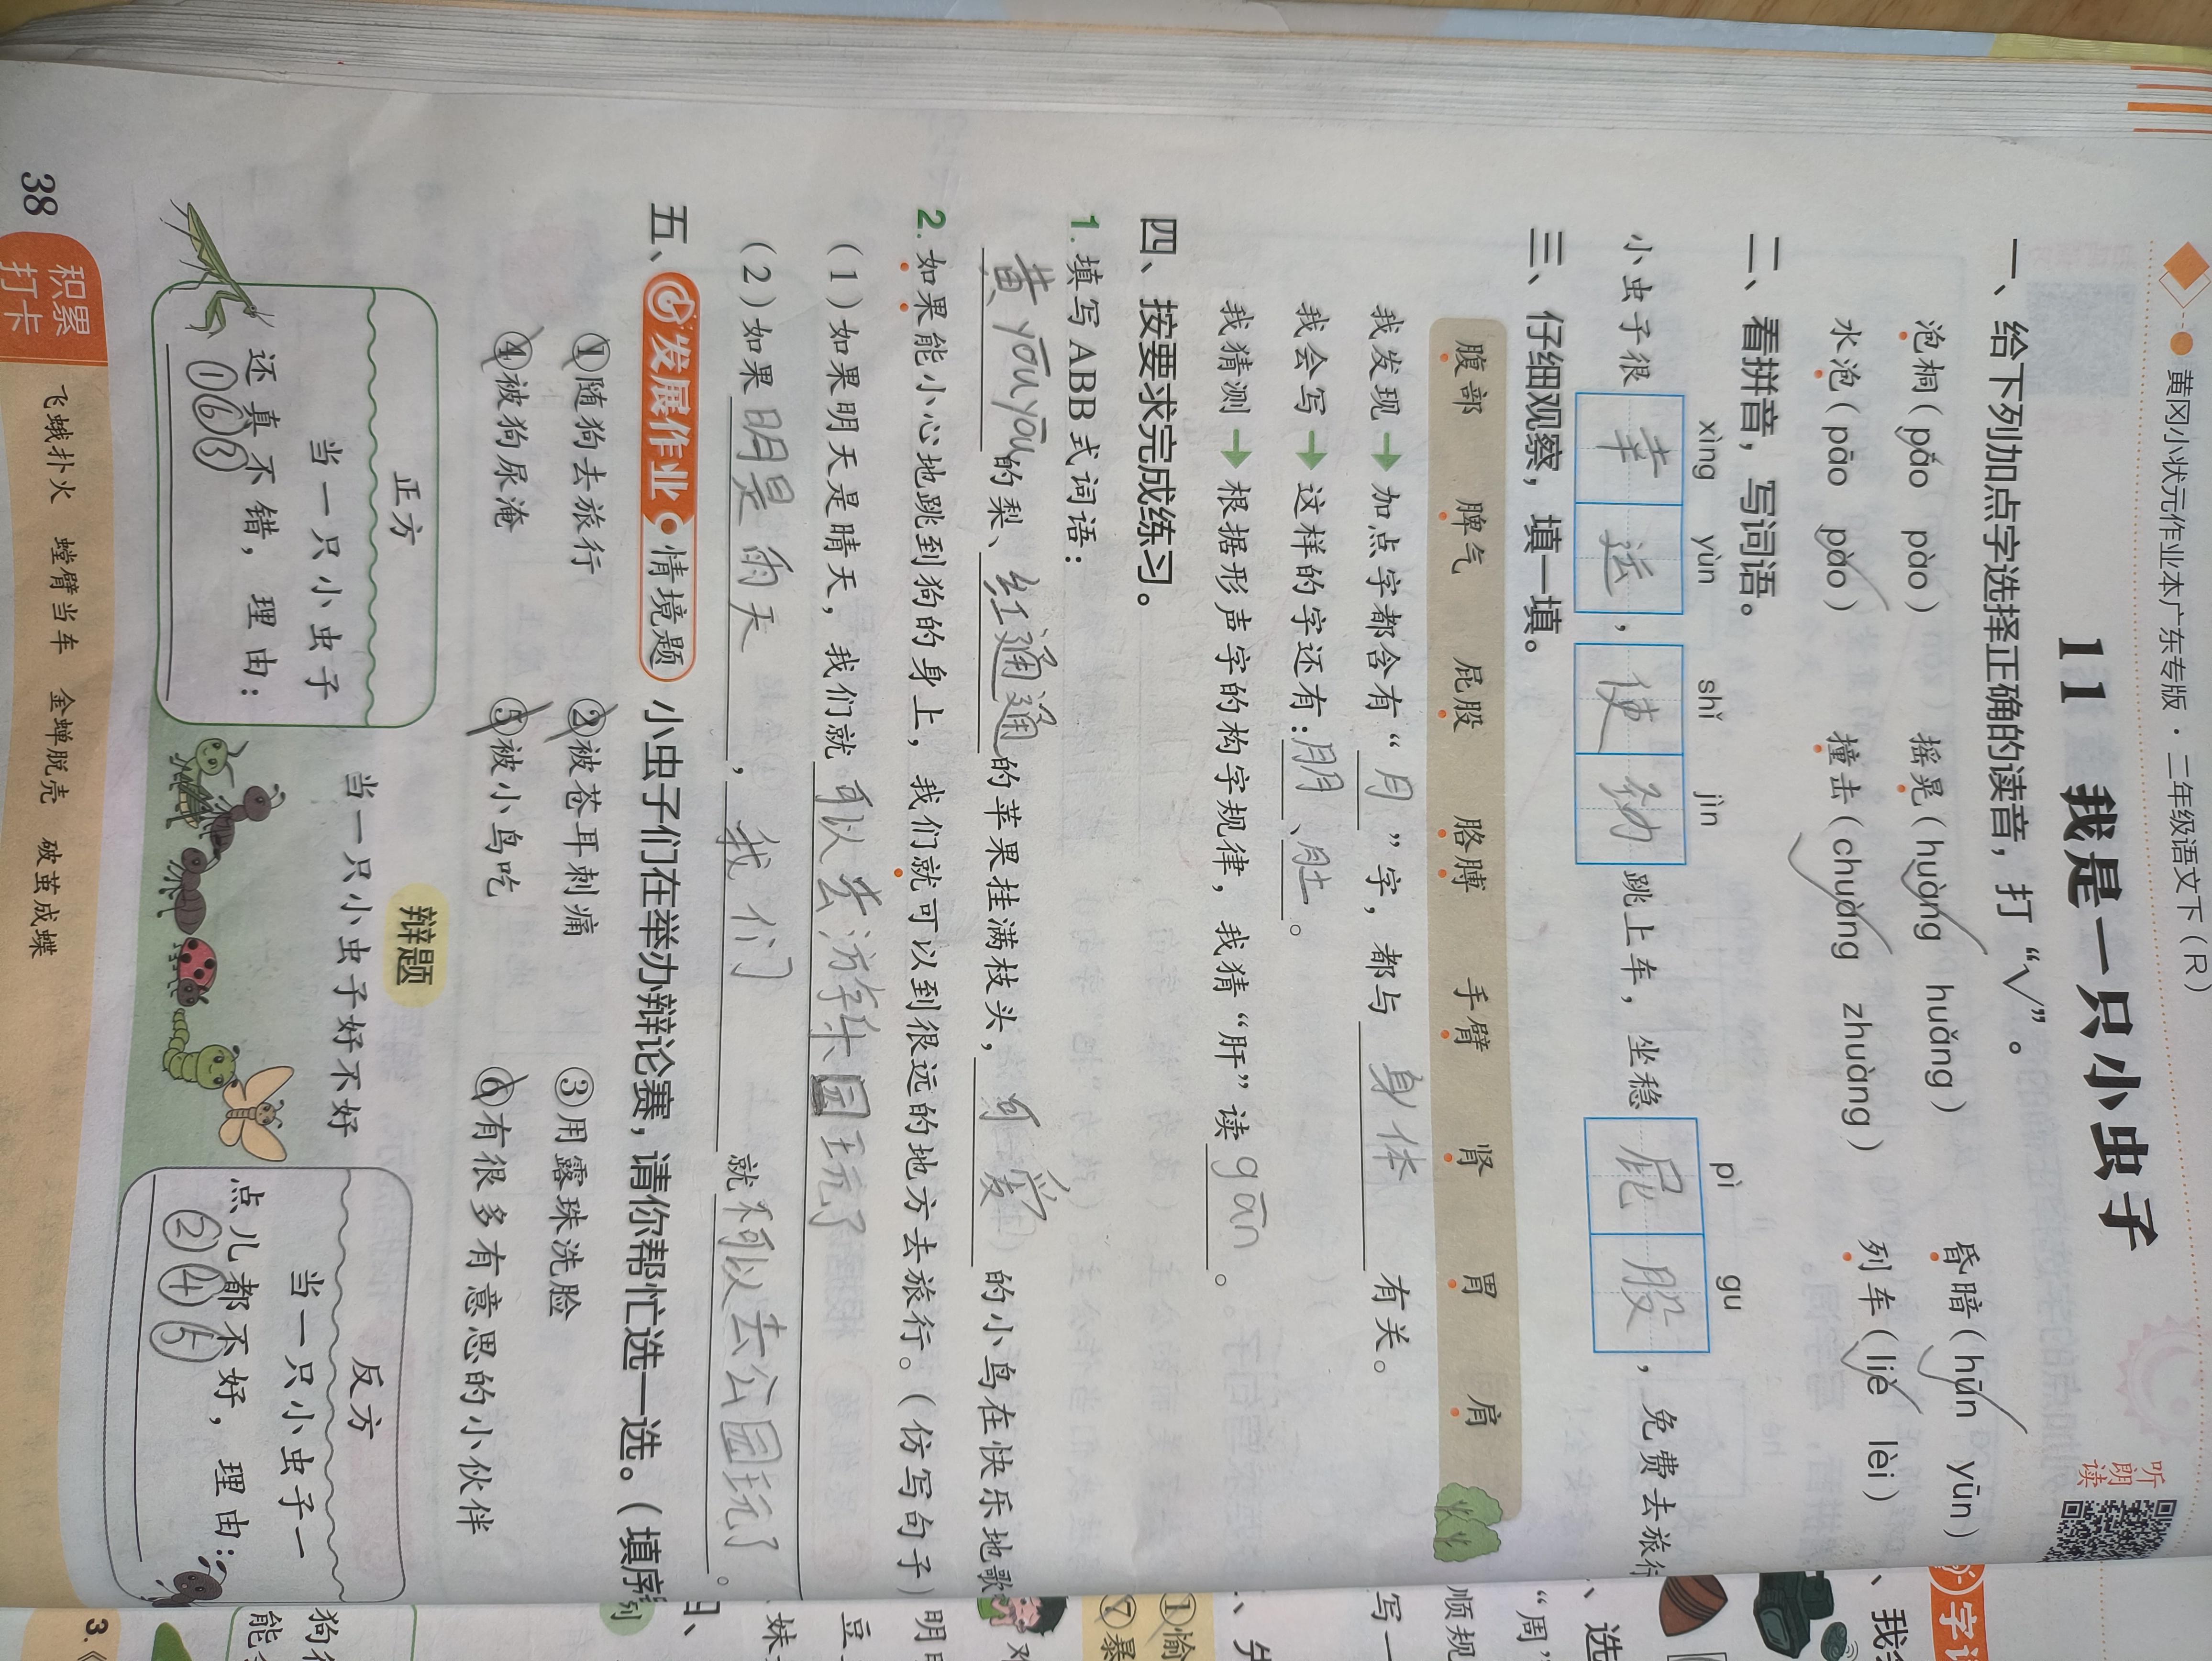 黄冈小状元作业本广东专版·二年级语文下（R）
11 我是一只小虫子
听朗读
一、给下列加点字选择正确的读音，打“√”。
泡桐（pāo pào） 摇晃（huàng huǎng） 昏暗（hūn yūn）
水泡（pāo pào） 撞击（chuàng zhuàng） 列车（liè lèi）
二、看拼音，写词语。
xìng yùn shǐ jìn pì gu
小虫子很幸运，使劲跳上车，坐稳屁股，免费去旅行
三、仔细观察，填一填。
腹部 脾气 屁股 胳膊 手臂 肾 胃 肩
我发现→加点字都含有“月”字，都与身体有关。
我会写→这样的字还有：朋、肚。
我猜测→根据形声字的构字规律，我猜“肝”读gān。
四、按要求完成练习。
1.填写ABB式词语：
黄yōuyōu的梨、红通通的苹果挂满枝头，可爱的小鸟在快乐地歌
2.如果能小心地跳到狗的身上，我们就可以到很远的地方去旅行。（仿写句子）
（1）如果明天是晴天，我们就可以去游乐园玩了
（2）如果明是雨天，我们就不可以去公园玩了。
五、发展作业 情境题 小虫子们在举办辩论赛，请你帮忙选一选。（填序
①随狗去旅行 ②被苍耳刺痛 ③用露珠洗脸
④被狗尿淹 ⑤被小鸟吃 ⑥有很多有意思的小伙伴
正方
当一只小虫子
还真不错，理由：
①⑥③
辩题
当一只小虫子好不好
反方
当一只小虫子一
点儿都不好，理由：
②④⑤
38
积累打卡
飞蛾扑火 螳臂当车 金蝉脱壳 破茧成蝶
字
、我
、选
“周”
顺规
写一
①愉
⑦暴
明
豆
妹
列
狗
能
3.《